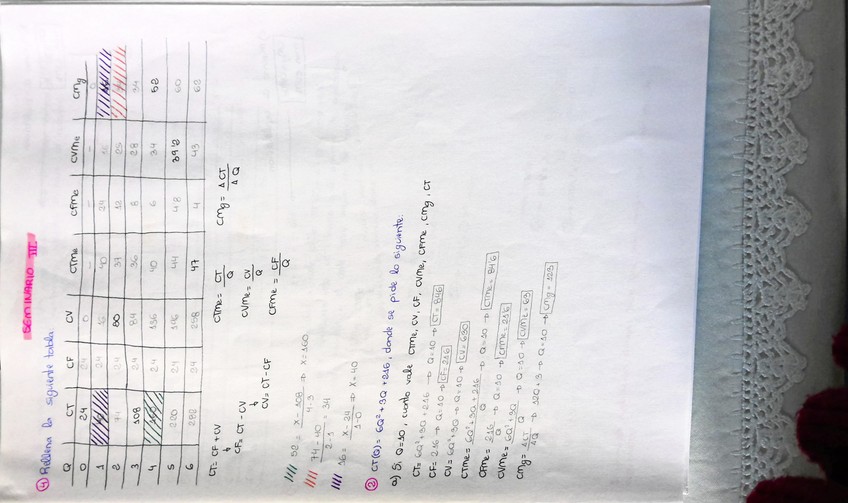 SEMINARIO III
1 Rellena la siguiente tabla
Q CT CF CV CTMe CFMe CVMe CMg
0 24 24 0 - - - 0
1 24 16 40 24 16
2 74 24 50 37 12 25
3 108 24 84 36 8 28 34
4 24 136 40 6 34 52
5 220 24 196 44 4 8 39 2 60
6 282 24 258 47 4 43 62
CT = CF + CV
CF = CT - CV
CV = CT - CF
CTMe = CT / Q
CVMe = CV / Q
CFMe = CF / Q
CMg = ΔCT / ΔQ
52 = x - 108 / 4-3 → x = 160
74 - 40 / 2-1 = 34
16 = x - 24 / 1-0 → x = 40
2 CT(Q) = 6Q² + 3Q + 216, donde se pide lo siguiente:
a) Si Q=10, cuanto vale CTMe, CV, CF, CVMe, CFMe, CMg, CT
CT = 6Q² + 3Q + 216 → Q=10 → CT = 846
CF = 216 → Q=10 → CF = 216
CV = 6Q² + 3Q → Q=10 → CV = 630
CTMe = 6Q² + 3Q + 216 / Q → Q=10 → CTMe = 84'6
CFMe = 216 / Q → Q=10 → CFMe = 21'6
CVMe = 6Q² + 3Q / Q → Q=10 → CVMe = 63
CMg = ΔCT / ΔQ → 12Q + 3 → Q=10 → CMg = 123